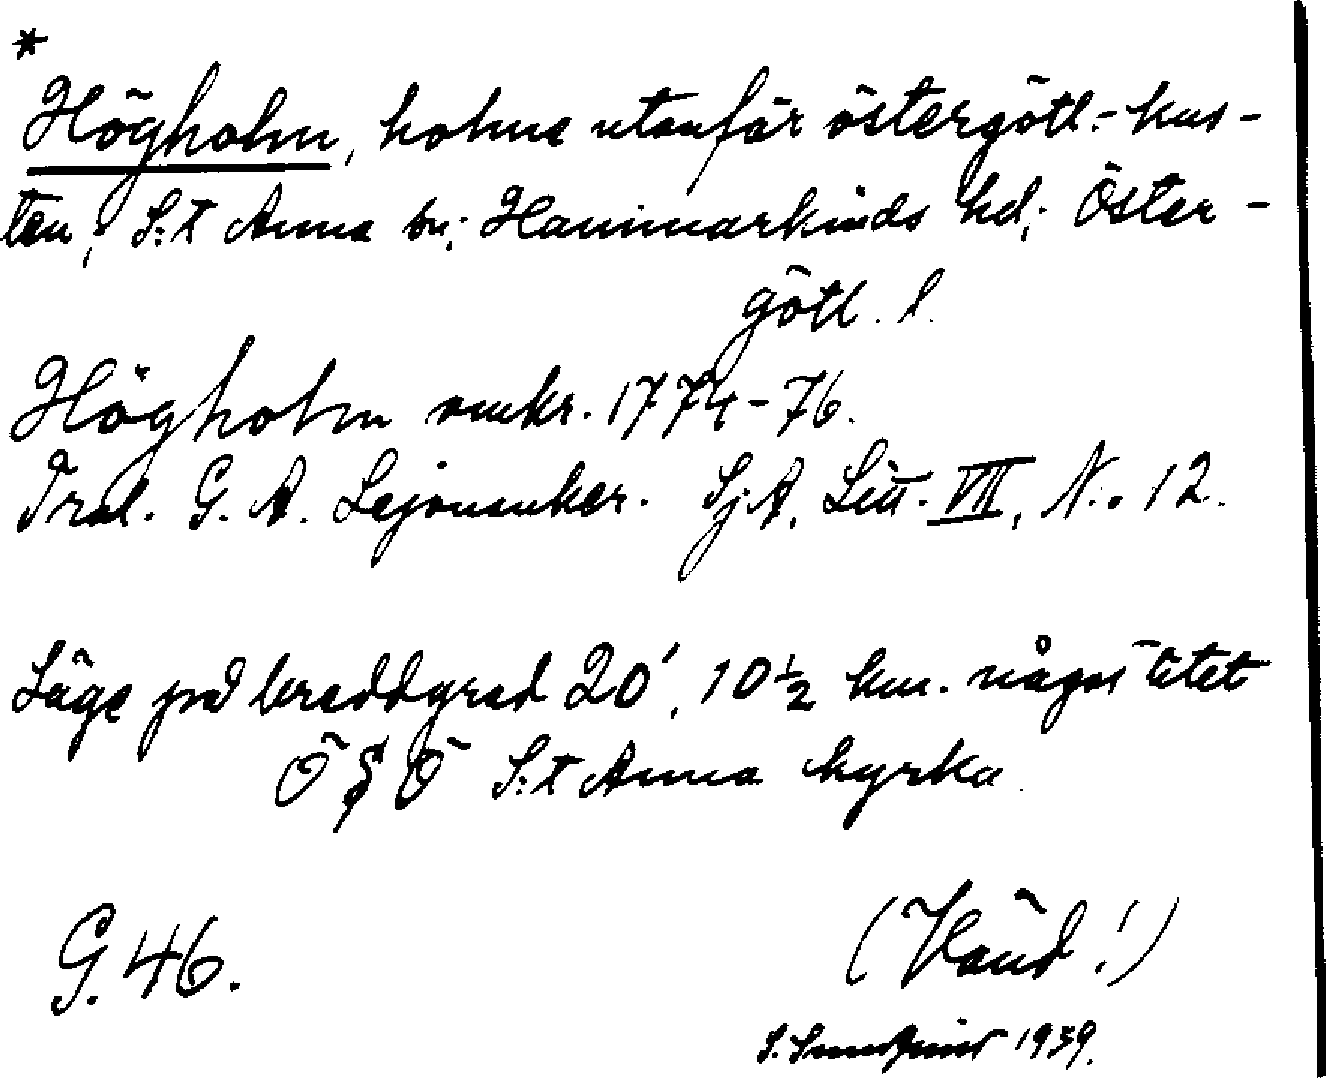 *
Högholm, holme utanför östergötl.-kus-
ten, S:t Anna sn; Hammarkinds hd; Öster-
götl. l.
Högholm omkr. 1774-76.
G. A. Lejonanker. Sj A, Litt. VII, N:o 12.
Läge på breddgrad 20', 10½ km. något
Ö S Ö S:t Anna kyrka.
G. 46.
(Vänd!)
1939.